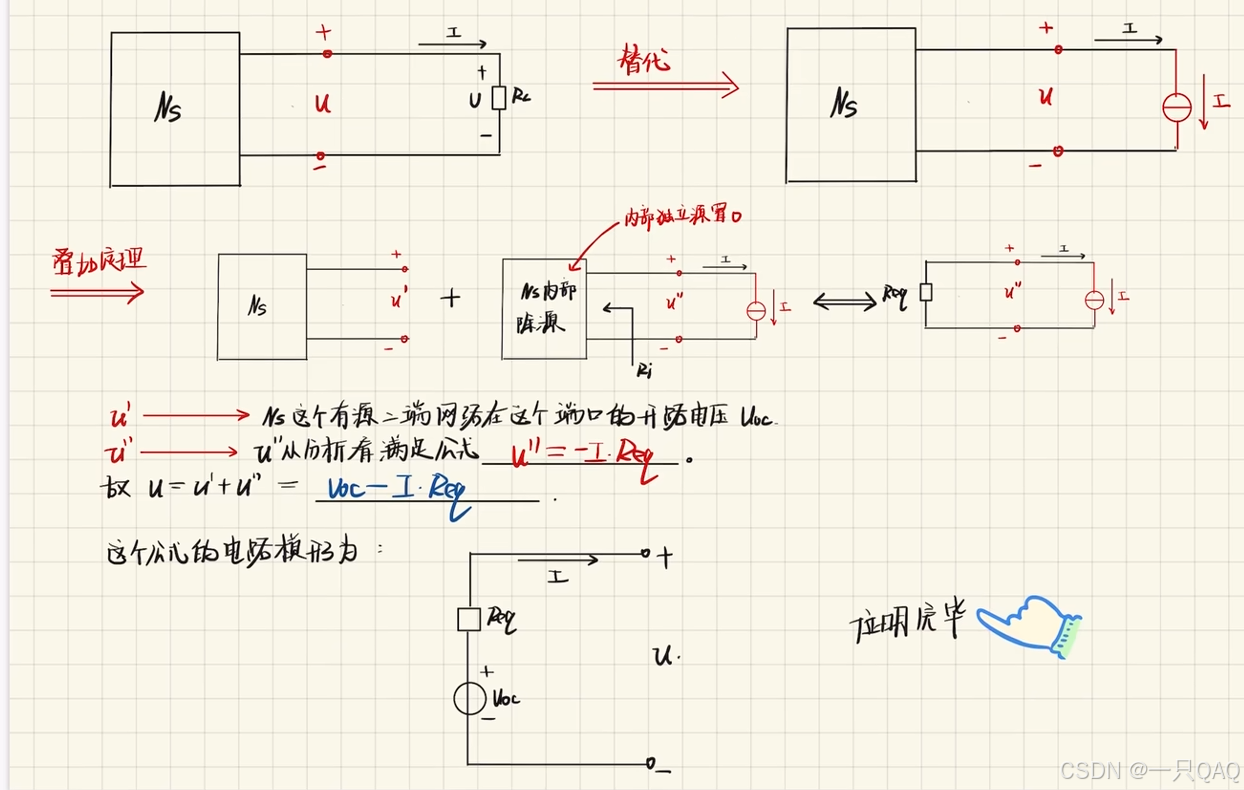 + I + I
Ns u + U - RL 替代 Ns u I
- -
内部独立源置0
叠加定理 Ns + u' - + Ns内部 + u'' - I I Req + u'' - I I
除源
Ri
u' Ns这个有源二端网络在这个端口的开路电压 Uoc.
u'' u''从分析看满足公式 u''=-I·Req 。
故 u=u'+u''= Uoc-I·Req .
这个公式的电路模形为:
I +
Req
证明完毕
u.
+
Uoc
-
-
CSDN @一只QAQ